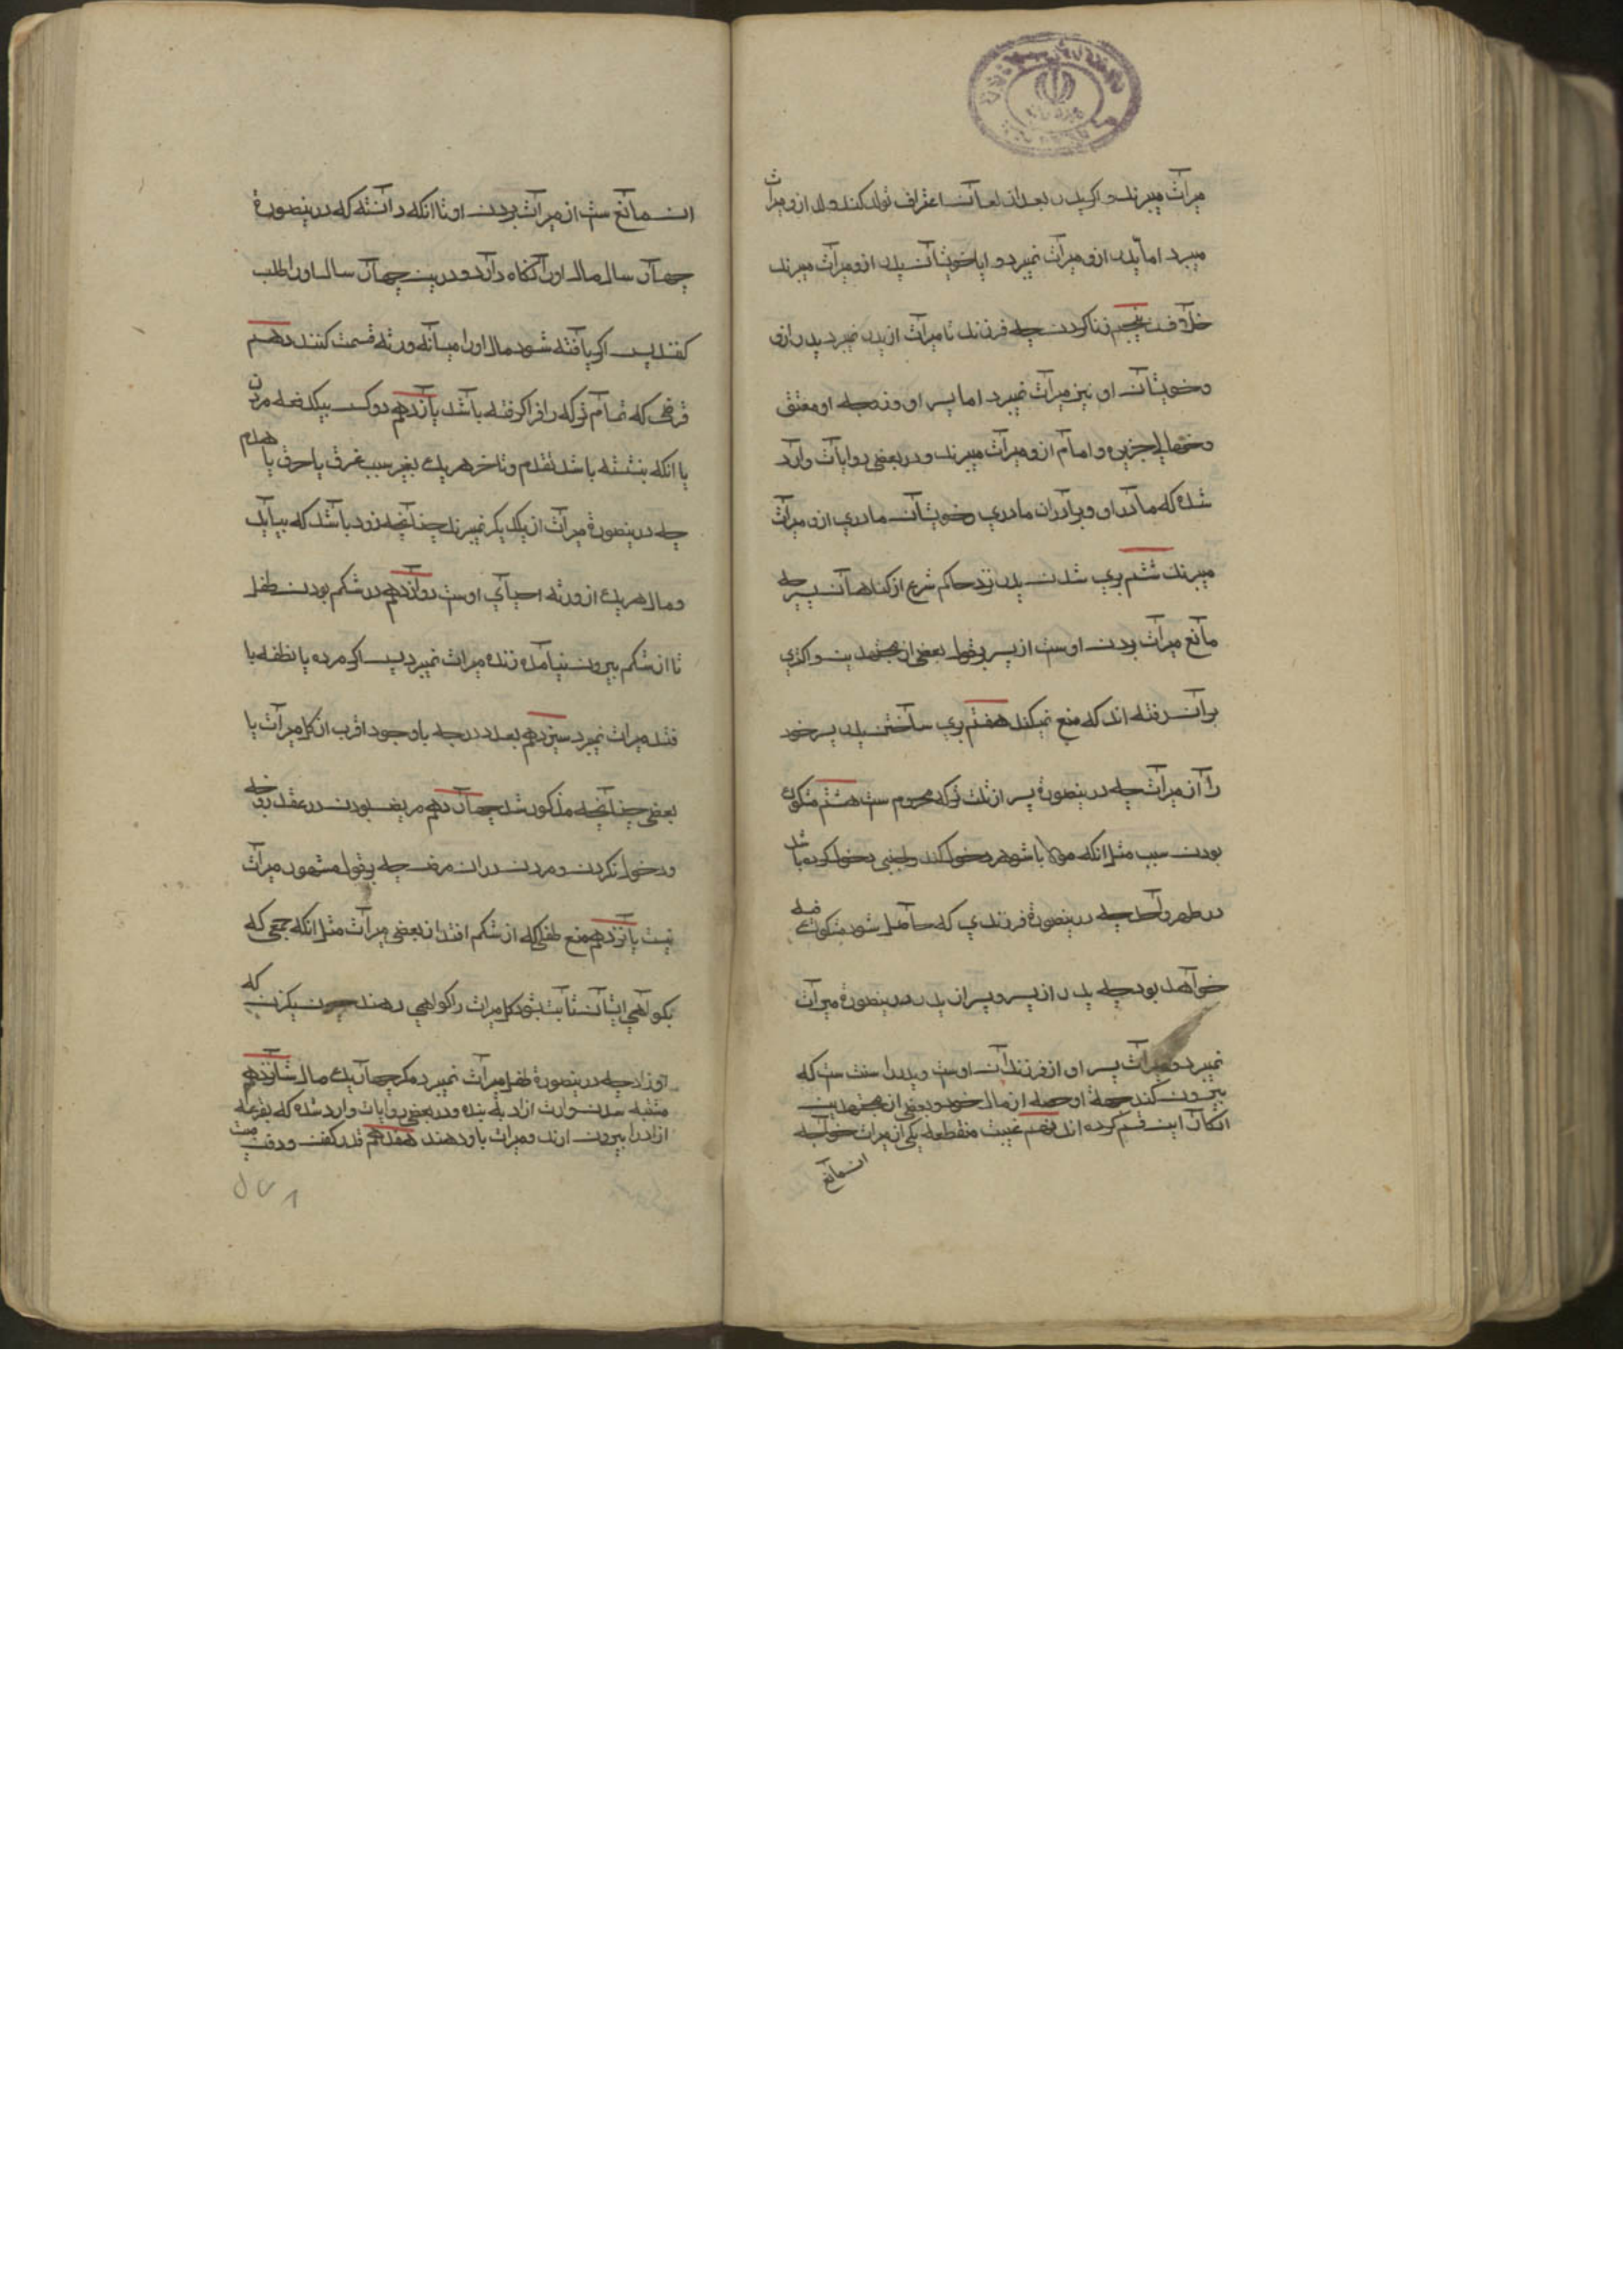 میراث میبرند و اکر پدر بعد از لعان اعتراف تولد کند ولد ازو میراث
میبرد اما پدر ازو میراث نمیبرد و ایا خویشان پدر ازو میراث میبرند
خلافست پنجم زنا کردن چه فرزند زنا میراث از پدر نمیبرد و پدر ازو
و خویشان او نیز میراث نمیبرد اما پسر او و زوجه او و معتق
و ضامن جریره و امام ازو میراث میبرند و در بعضی روایات وارد
شده که مادر او و برادران مادری و خویشان مادری ازو میراث
میبرند ششم بری شدن پدر نزد حاکم شرع از کناهان پسر چه
مانع میراث بودن اوست از پسر بقول بعضی از مجتهدین و اکثری
بران رفته اند که منع نمیکند هفتم بری ساختن پدر پسر خود
را از میراث چه درینصورة پسر از ثلث ترکه محروم ست هشتم مشکوک
بودن سبب مثل انکه مولا یا شوهر دخول کند و اجنبی دخول کرده باشد
در طهر واحد چه درینصورة فرزندی که حاصل شود مشکوک فیه
خواهد بود چه پدر از پسر و پسر از پدر درینصورة میراث
نمیبرد و میراث پسر او از فرزندان اوست و پدر را سنت ست که
بیرون کند جهة او حصه از مال خود و بعضی از مجتهدین
انکار این قسم کرده اند نهم غیبت منقطعه یکی از میراث خواهد چه
ان مانع
ان مانع ست از میراث بردن او تا انکه دانسته که درینصورة
چهار سال مال او را نکاه دارد و درین چهار سال او را طلب
کنند پس اکر یافته شود مال او را میانه ورثه قسمت کنند دهم
قرضی که تمام ترکه را فرا کرفته باشد یازدهم دو کس بیکدفعه مردن
یا انکه مشتبه باشد تقدم و تاخر هریک بغیر سبب غرق یا حرق یا هدم
چه درینصورة میراث از یکدیکر نمیبرند چنانچه زود باشد که بیاید
و مال هریک از ورثه احیای اوست دوازدهم در شکم بودن طفل
تا از شکم بیرون نیامده زنده میراث نمیبرد پس اکر مرده یا نطفه یا
فتد میراث نمیبرد سیزدهم بعد درجه با وجود اقرب از کل میراث یا
بعضی چنانچه مذکور شد چهاردهم مریض بودن در عقد زوجه
و دخول نکردن و مردن دران مرض چه بقول مشهور میراث
نیست پانزدهم منع طفلی که از شکم افتد از بعضی میراث مثل انکه جمعی که
بکواهی ایشان ثابت شود کل میراث را کواهی دهند چون یکزن که
چه درینصورة طفل میراث نمیبرد مکر چهار یک مال شانزدهم
مشتبه شدن وارث ازاد به بنده و در بعضی روایات وارد شده که بقرعه
ازاد را بیرون ارند و میراث باو دهند هفدهم قدر کفن و دفن میت